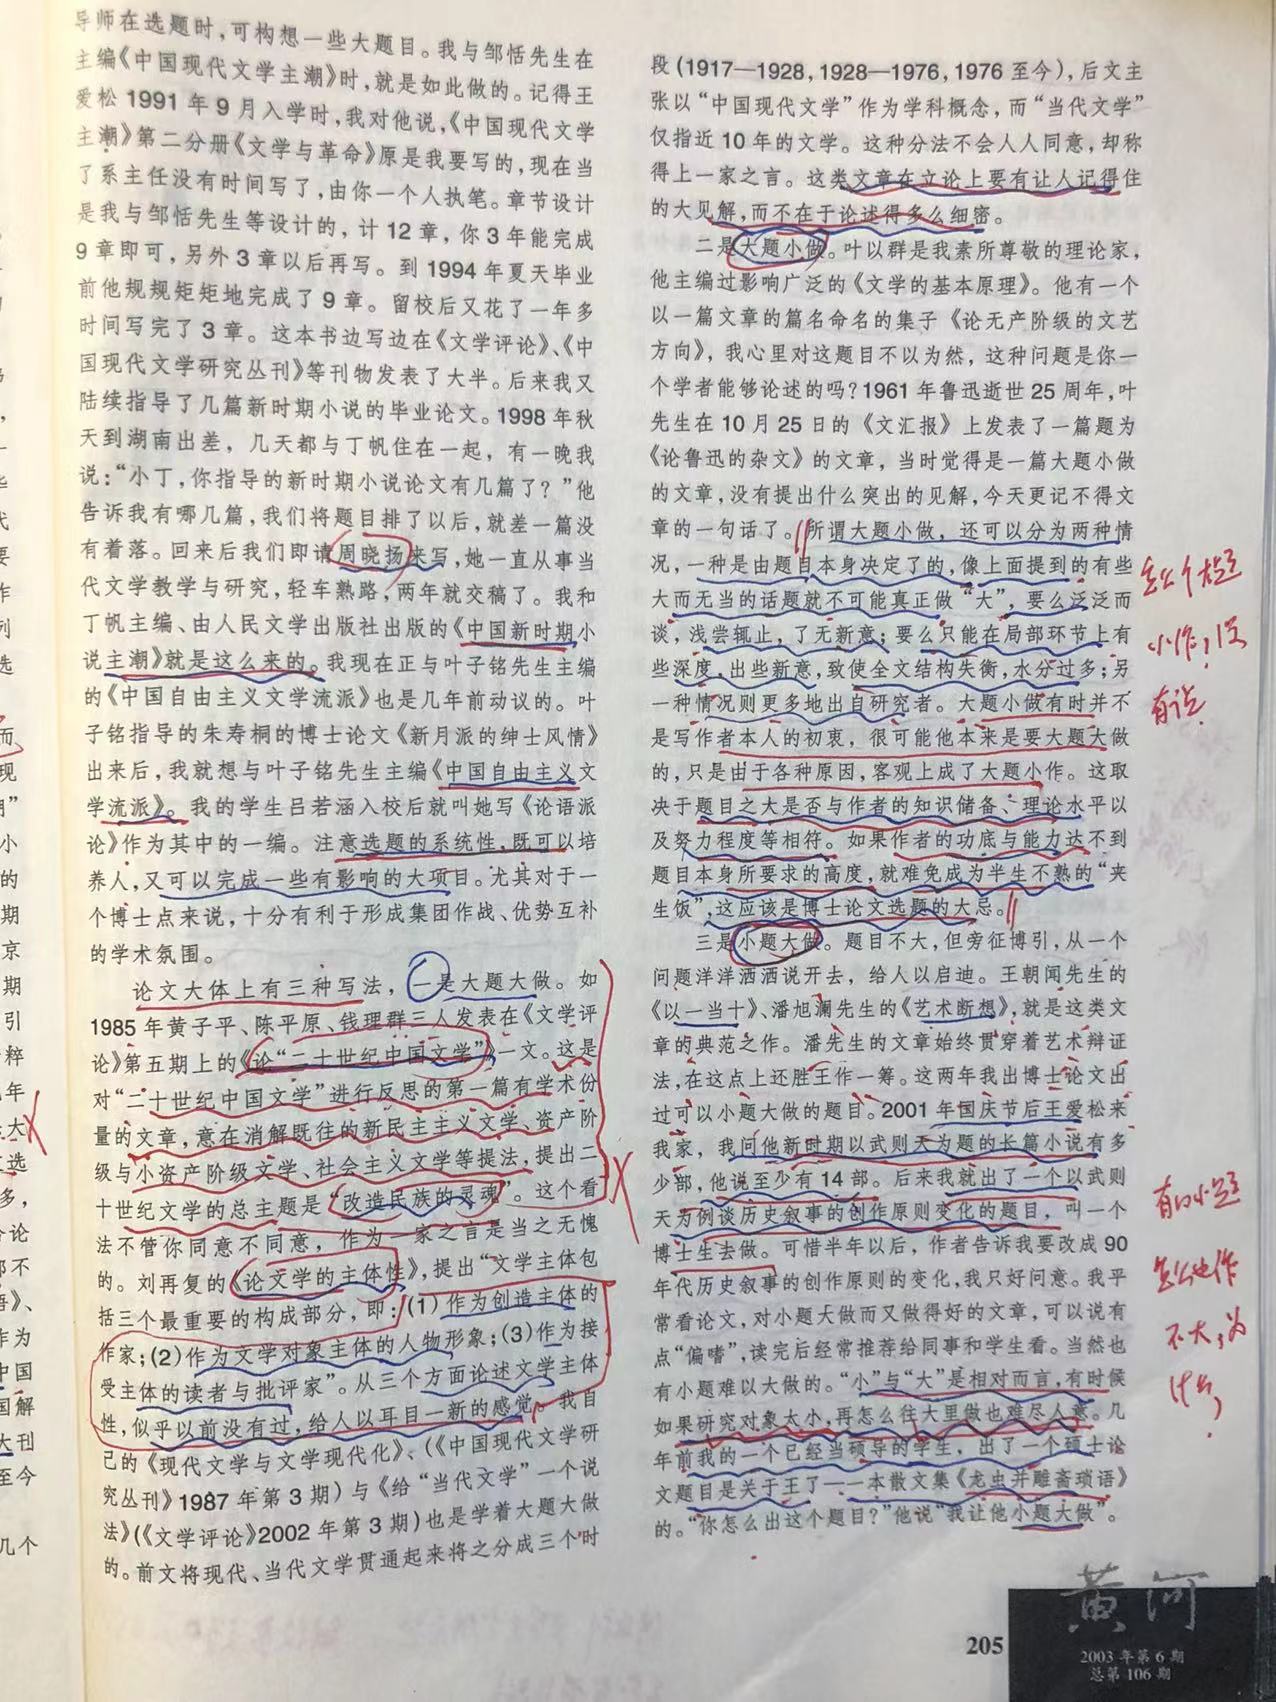 导师在选题时，可构想一些大题目。我与邹恬先生在
主编《中国现代文学主潮》时，就是如此做的。记得王
爱松1991年9月入学时，我对他说，《中国现代文学
主潮》第二分册《文学与革命》原是我要写的，现在当
了系主任没有时间写了，由你一个人执笔。章节设计
是我与邹恬先生等设计的，计12章，你3年能完成
9章即可，另外3章以后再写。到1994年夏天毕业
前他规规矩矩地完成了9章。留校后又花了一年多
时间写完了3章。这本书边写边在《文学评论》、《中
国现代文学研究丛刊》等刊物发表了大半。后来我又
陆续指导了几篇新时期小说的毕业论文。1998年秋
天到湖南出差，几天都与丁帆住在一起，有一晚我
说：“小丁，你指导的新时期小说论文有几篇了？”他
告诉我有哪几篇，我们将题目排了以后，就差一篇没
有着落。回来后我们即请周晓扬来写，她一直从事当
代文学教学与研究，轻车熟路，两年就交稿了。我和
丁帆主编、由人民文学出版社出版的《中国新时期小
说主潮》就是这么来的。我现在正与叶子铭先生主编
的《中国自由主义文学流派》也是几年前动议的。叶
子铭指导的朱寿桐的博士论文《新月派的绅士风情》
出来后，我就想与叶子铭先生主编《中国自由主义文
学流派》。我的学生吕若涵入校后就叫她写《论语派
论》作为其中的一编。注意选题的系统性，既可以培
养人，又可以完成一些有影响的大项目。尤其对于一
个博士点来说，十分有利于形成集团作战、优势互补
的学术氛围。
论文大体上有三种写法，一是大题大做。如
1985年黄子平、陈平原、钱理群三人发表在《文学评
论》第五期上的《论“二十世纪中国文学”》一文。这是
对“二十世纪中国文学”进行反思的第一篇有学术份
量的文章，意在消解既往的新民主主义文学、资产阶
级与小资产阶级文学、社会主义文学等提法，提出二
十世纪文学的总主题是“改造民族的灵魂”。这个看
法不管你同意不同意，作为一家之言是当之无愧
的。刘再复的《论文学的主体性》，提出“文学主体包
括三个最重要的构成部分，即：(1)作为创造主体的
作家；(2)作为文学对象主体的人物形象；(3)作为接
受主体的读者与批评家”。从三个方面论述文学主体
性，似乎以前没有过，给人以耳目一新的感觉。我自
己的《现代文学与文学现代化》、(《中国现代文学研
究丛刊》1987年第3期)与《给“当代文学”一个说
法》(《文学评论》2002年第3期)也是学着大题大做
的。前文将现代、当代文学贯通起来将之分成三个时
段(1917—1928，1928—1976，1976至今)，后文主
张以“中国现代文学”作为学科概念，而“当代文学”
仅指近10年的文学。这种分法不会人人同意，却称
得上一家之言。这类文章在立论上要有让人记得住
的大见解，而不在于论述得多么细密。
二是大题小做。叶以群是我素所尊敬的理论家，
他主编过影响广泛的《文学的基本原理》。他有一个
以一篇文章的篇名命名的集子《论无产阶级的文艺
方向》，我心里对这题目不以为然，这种问题是你一
个学者能够论述的吗？1961年鲁迅逝世25周年，叶
先生在10月25日的《文汇报》上发表了一篇题为
《论鲁迅的杂文》的文章，当时觉得是一篇大题小做
的文章，没有提出什么突出的见解，今天更记不得文
章的一句话了。所谓大题小做，还可以分为两种情
况，一种是由题目本身决定了的，像上面提到的有些
大而无当的话题就不可能真正做“大”，要么泛泛而
谈，浅尝辄止，了无新意；要么只能在局部环节上有
些深度，出些新意，致使全文结构失衡，水分过多；另
一种情况则更多地出自研究者。大题小做有时并不
是写作者本人的初衷，很可能他本来是要大题大做
的，只是由于各种原因，客观上成了大题小作。这取
决于题目之大是否与作者的知识储备、理论水平以
及努力程度等相符。如果作者的功底与能力达不到
题目本身所要求的高度，就难免成为半生不熟的“夹
生饭”，这应该是博士论文选题的大忌。
三是小题大做。题目不大，但旁征博引，从一个
问题洋洋洒洒说开去，给人以启迪。王朝闻先生的
《以一当十》、潘旭澜先生的《艺术断想》，就是这类文
章的典范之作。潘先生的文章始终贯穿着艺术辩证
法，在这点上还胜王作一筹。这两年我出博士论文出
过可以小题大做的题目。2001年国庆节后王爱松来
我家，我问他新时期以武则天为题的长篇小说有多
少部，他说至少有14部。后来我就出了一个以武则
天为例谈历史叙事的创作原则变化的题目，叫一个
博士生去做。可惜半年以后，作者告诉我要改成90
年代历史叙事的创作原则的变化，我只好同意。我平
常看论文，对小题大做而又做得好的文章，可以说有
点“偏嗜”，读完后经常推荐给同事和学生看。当然也
有小题难以大做的。“小”与“大”是相对而言，有时候
如果研究对象太小，再怎么往大里做也难尽人意。几
年前我的一个已经当硕导的学生，出了一个硕士论
文题目是关于王了一一本散文集《龙虫并雕斋琐语》
的。“你怎么出这个题目？”他说“我让他小题大做”。
怎么个大题
小作，没
有说
有的小题
怎么也作
不大，为
什么，
205
黄河
2003年第6期
总第106期